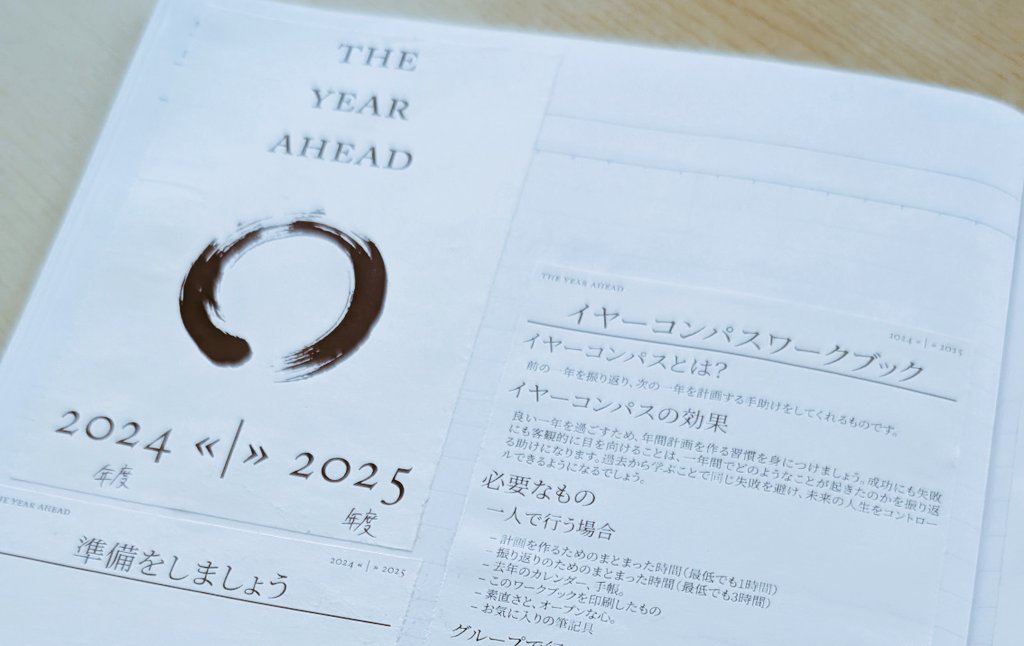 THE
YEAR
AHEAD
2024 «|» 2025
年度
年度
THE YEAR AHEAD
2024 « | » 2025
準備をしましょう
THE YEAR AHEAD
2024 « | » 2025
イヤーコンパスワークブック
イヤーコンパスとは?
前の一年を振り返り、次の一年を計画する手助けをしてくれるものです。
イヤーコンパスの効果
良い一年を過ごすため、年間計画を作る習慣を身につけましょう。成功にも失敗
にも客観的に目を向けることは、一年間でどのようなことが起きたのかを振り返
る助けになります。過去から学ぶことで同じ失敗を避け、未来の人生をコントロー
ルできるようになるでしょう。
必要なもの
一人で行う場合
– 計画を作るためのまとまった時間(最低でも1時間)
– 振り返りのためのまとまった時間(最低でも3時間)
– 去年のカレンダー、手帳。
– このワークブックを印刷したもの
– 素直さと、オープンな心。
– お気に入りの筆記具
グループで行